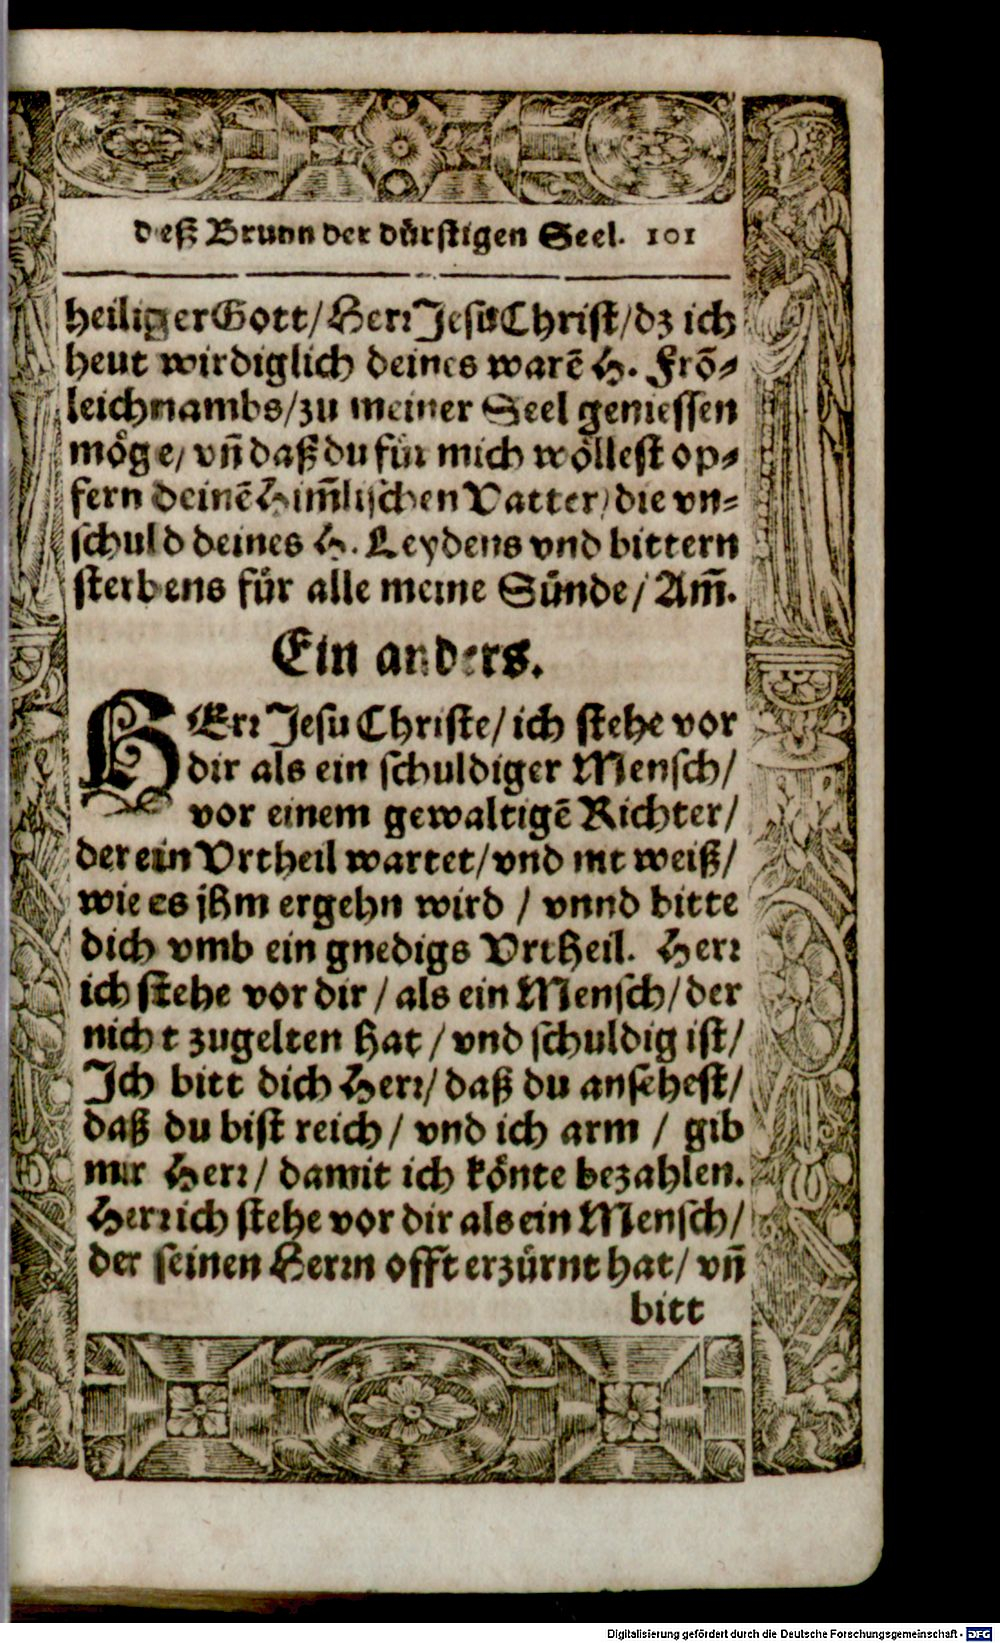 deß Brunn der dürstigen Seel. 101
heiliger Gott/ Herr Jesu Christ/ dz ich
heut wirdiglich deines warē H. Frō-
leichnambs/ zu meiner Seel geniessen
möge/ vn̄ daß du für mich wöllest op-
fern deinē Him̄lischen Vatter/ die vn-
schuld deines H. Leydens vnd bittern
sterbens für alle meine Sünde/ Am̄.
Ein anders.
HErr Jesu Christe/ ich stehe vor
dir als ein schuldiger Mensch/
vor einem gewaltigē Richter/
der ein Vrtheil wartet/ vnd nit weiß/
wie es jhm ergehn wird / vnnd bitte
dich vmb ein gnedigs Vrtheil. Herr
ich stehe vor dir / als ein Mensch/ der
nicht zugelten hat / vnd schuldig ist/
Ich bitt dich Herr/ daß du ansehest/
daß du bist reich / vnd ich arm / gib
mir Herr / damit ich könte bezahlen.
Herr ich stehe vor dir als ein Mensch/
der seinen Herrn offt erzürnt hat/ vn̄
bitt
Digitalisierung gefördert durch die Deutsche Forschungsgemeinschaft - DFG